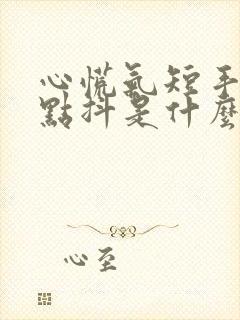 心慌氣短手
點抖是什麼
心至